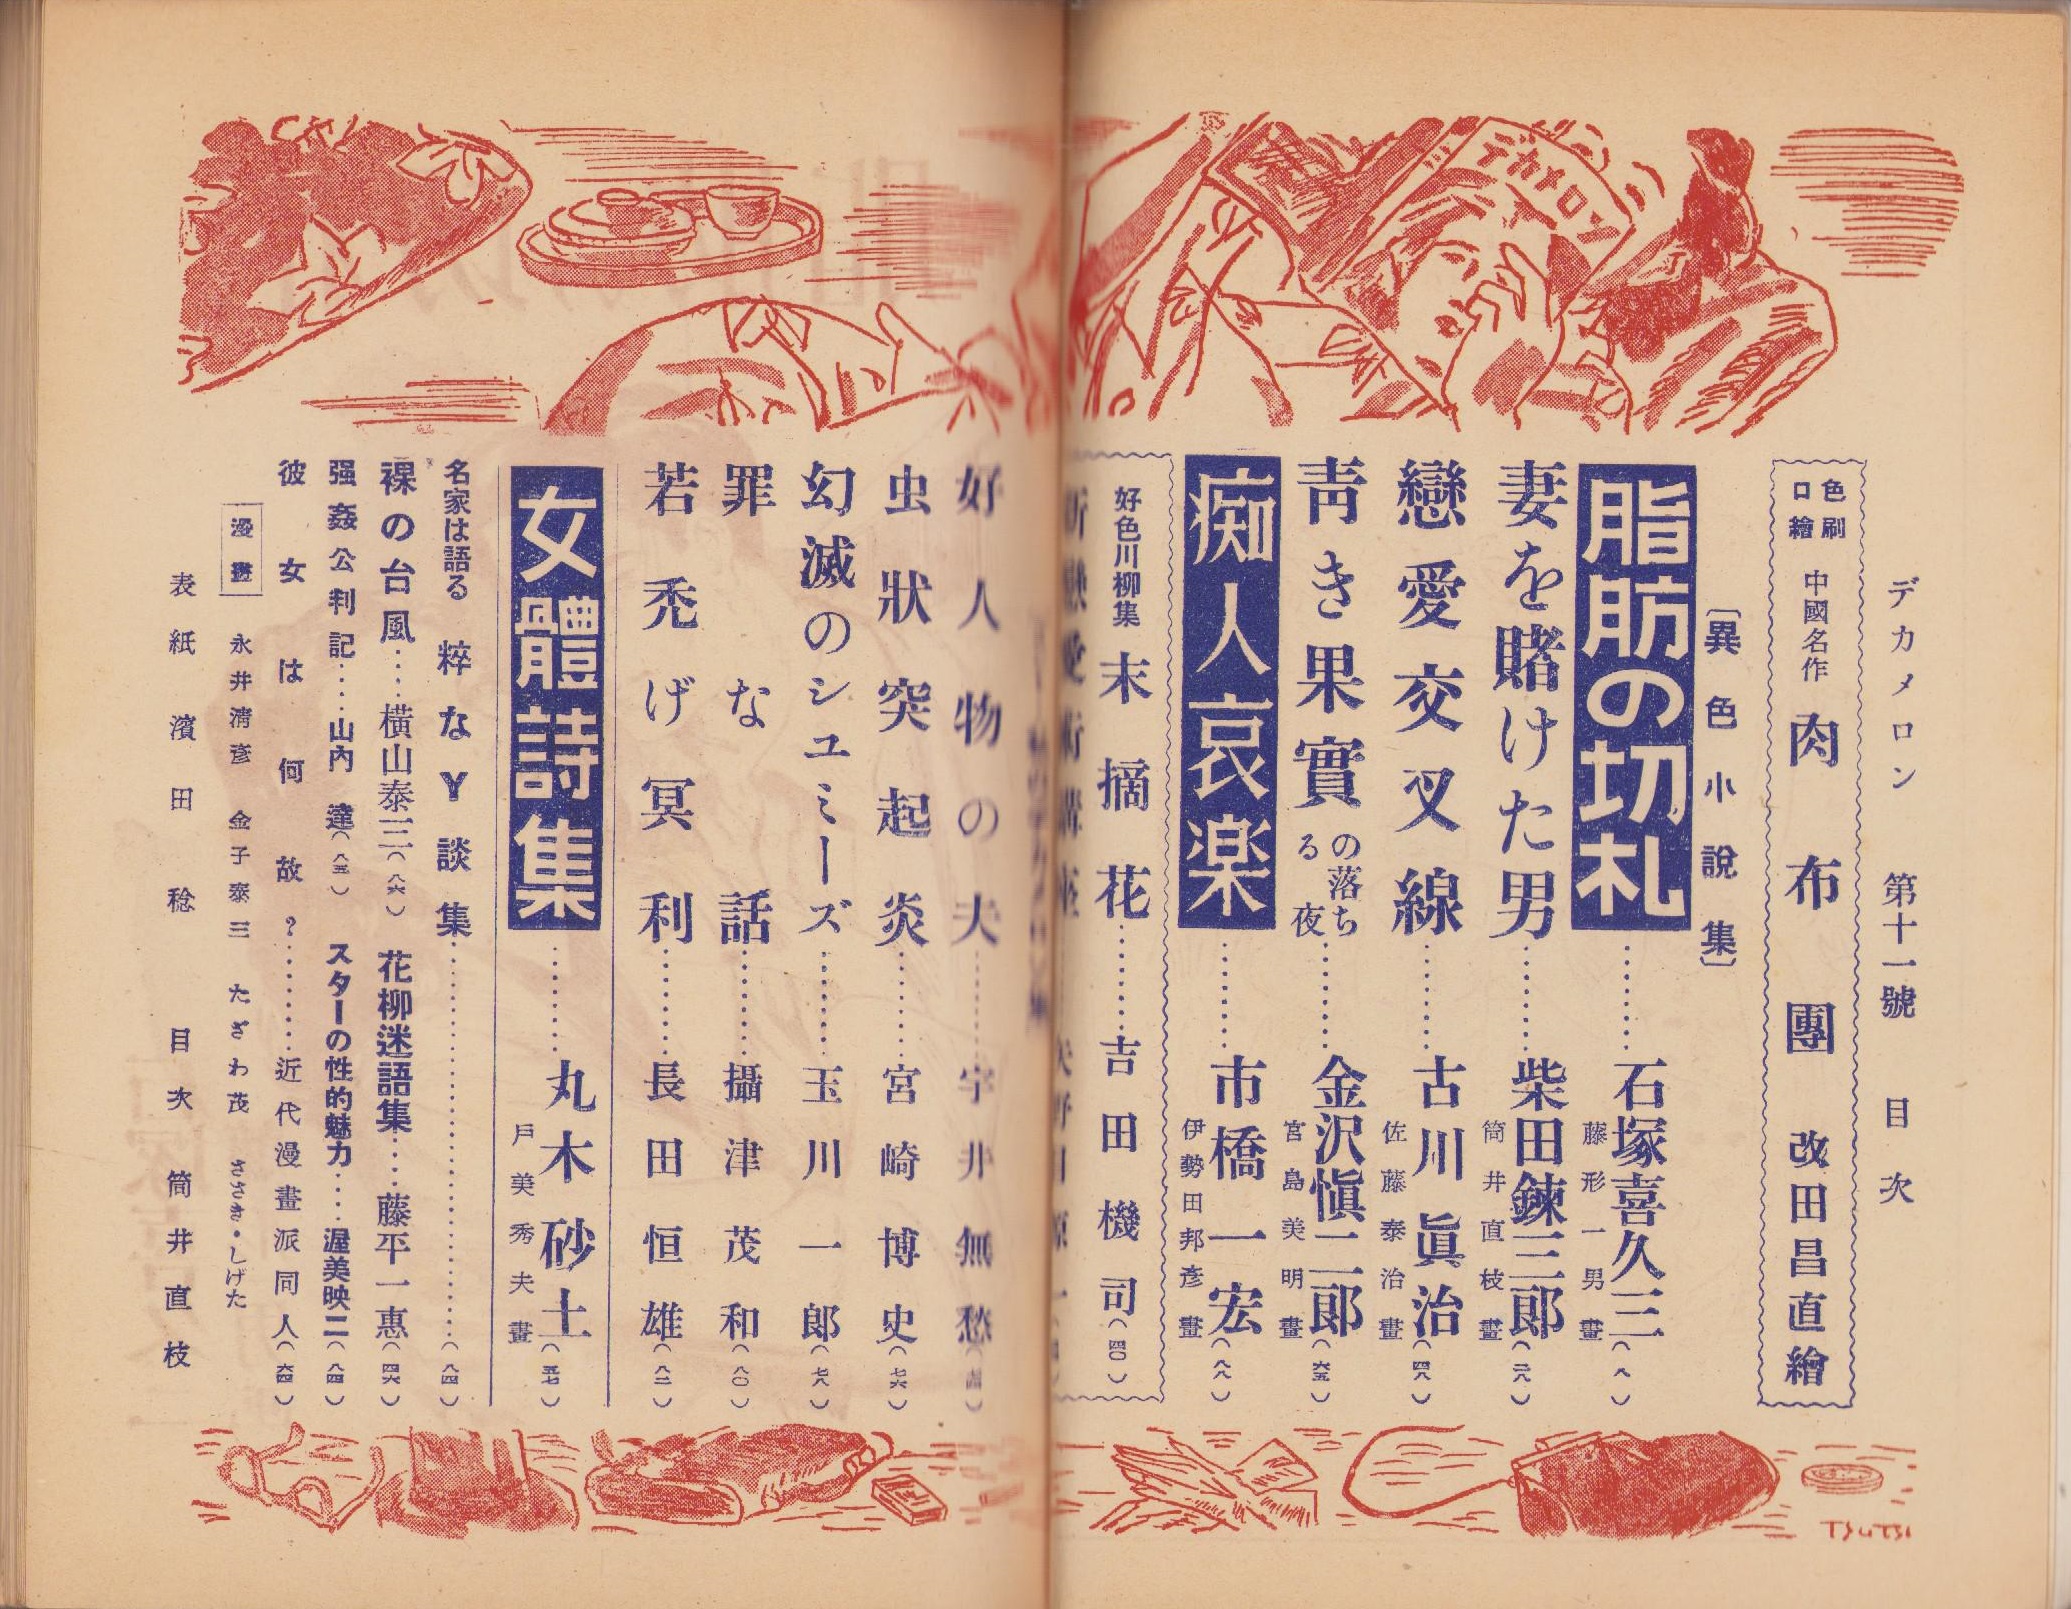 デカメロン 第十一號 目次
色刷
口繪
中國名作 肉布團 改田昌直繪
〔異色小說集〕
脂肪の切札………石塚喜久三(八)
藤形一男畫
妻を賭けた男………柴田鍊三郎(二八)
筒井直枝畫
戀愛交叉線………古川眞治(四八)
佐藤泰治畫
靑き果實の落ちる夜………金沢愼二郎(六五)
宮島美明畫
痴人哀楽………市橋一宏(八八)
伊勢田邦彥畫
好色川柳集 末摘花………吉田機司(四〇)
好人物の夫………宇井無愁
虫狀突起炎………宮崎博史(七六)
幻滅のシユミーズ………玉川一郎(七八)
罪な話………攝津茂和(八〇)
若禿げ冥利………長田恒雄(八二)
女體詩集………丸木砂土(五七)
戶美秀夫畫
名家は語る 粹なY談集………(八四)
裸の台風……橫山泰三(八六) 花柳迷語集……藤平一惠(四六)
强姦公判記……山內達(八五) スターの性的魅力……渥美映二(八四)
彼女は何故?………近代漫畫派同人(六四)
漫畫 永井淸彥 金子泰三 たざわ茂 ささき・しげた
表紙 濱田稔 目次 筒井直枝
デカメロン
TSUTSI